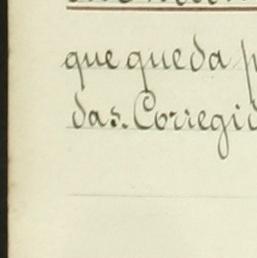 que queda
das. Corregid